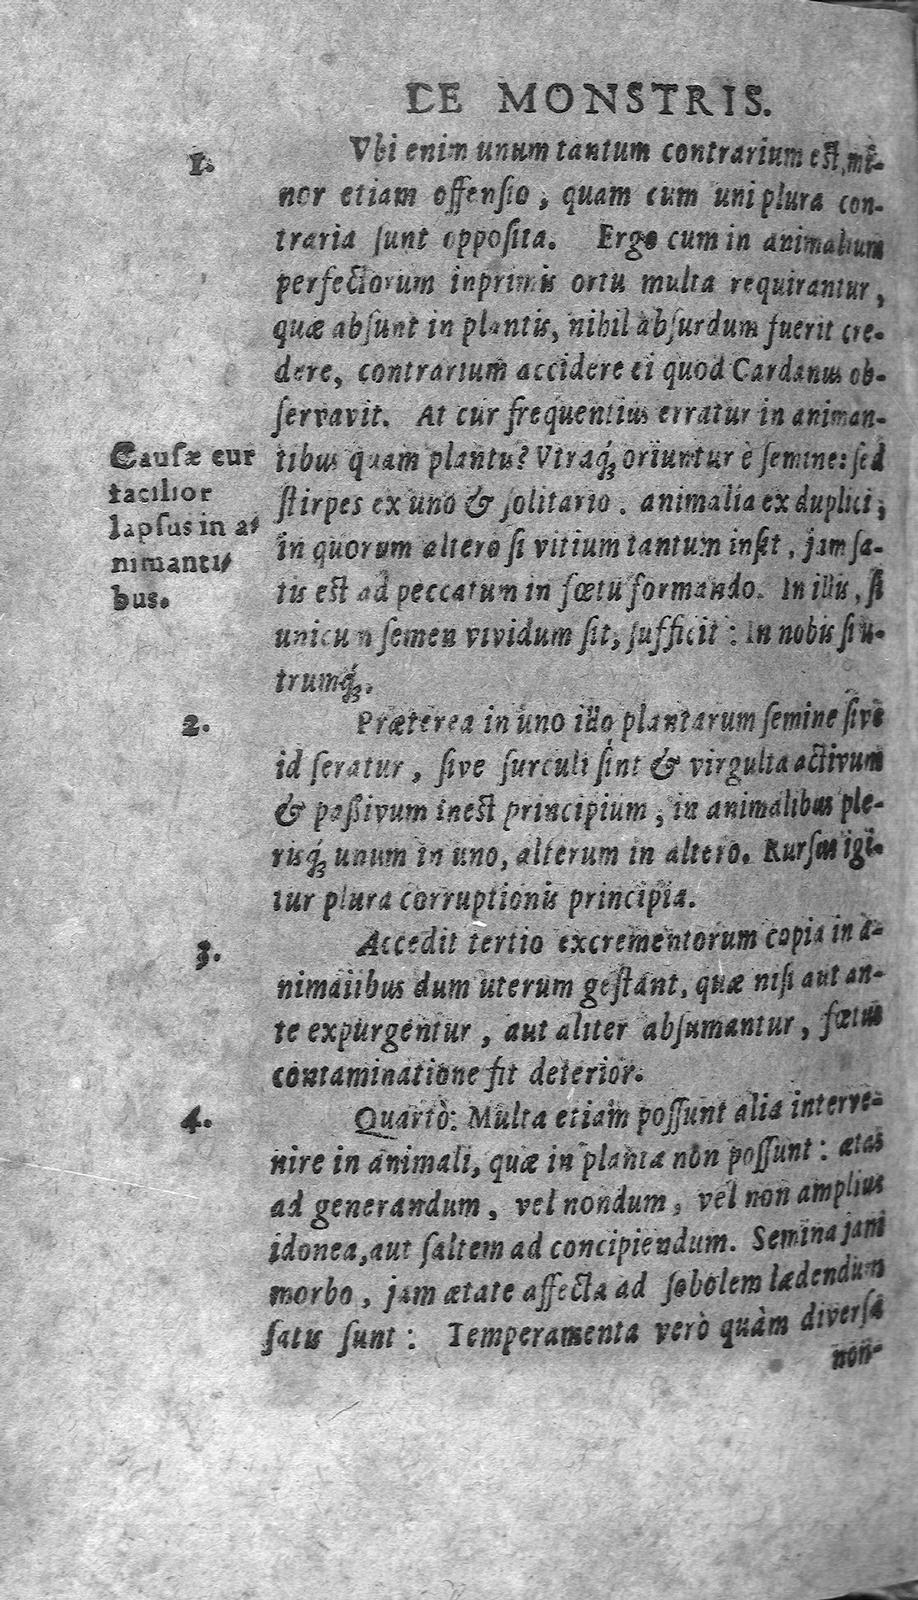 DE MONSTRIS.
1.
Vbi enim unum tantum contrarium est, mi-
nor etiam offensio, quam cum uni plura con-
traria sunt opposita. Ergo cum in animalium
perfectorum inprimis ortu multa requirantur,
quæ absunt in plantis, nihil absurdum fuerit cre-
dere, contrarium accidere ei quod Cardanus ob-
servavit. At cur frequentius erratur in animan-
Causæ cur
facilior
lapsus in a-
nimanti-
bus.
tibus quam plantis? Vtraq́; oriuntur è semine: sed
stirpes ex uno & solitario. animalia ex duplici;
in quorum altero si vitium tantum insit, jam sa-
tis est ad peccatum in fœtu formando. In illis, si
unicum semen vividum sit, sufficit: In nobis si u-
trumq́;.
2.
Præterea in uno illo plantarum semine sive
id seratur, sive surculi sint & virgulta activum
& passivum inest principium; in animalibus ple-
risq́; unum in uno, alterum in altero. Rursus igi-
tur plura corruptionis principia.
3.
Accedit tertio excrementorum copia in a-
nimalibus dum uterum gestant, quæ nisi aut an-
te expurgentur, aut aliter absumantur, fœtus
contaminatione fit deterior.
4.
Quartò: Multa etiam possunt alia interve-
nire in animali, quæ in planta non possunt: ætas
ad generandum, vel nondum, vel non amplius
idonea, aut saltem ad concipiendum. Semina jam
morbo, jam ætate affecta ad sobolem lædendum
satis sunt: Temperamenta verò quàm diversa
non-